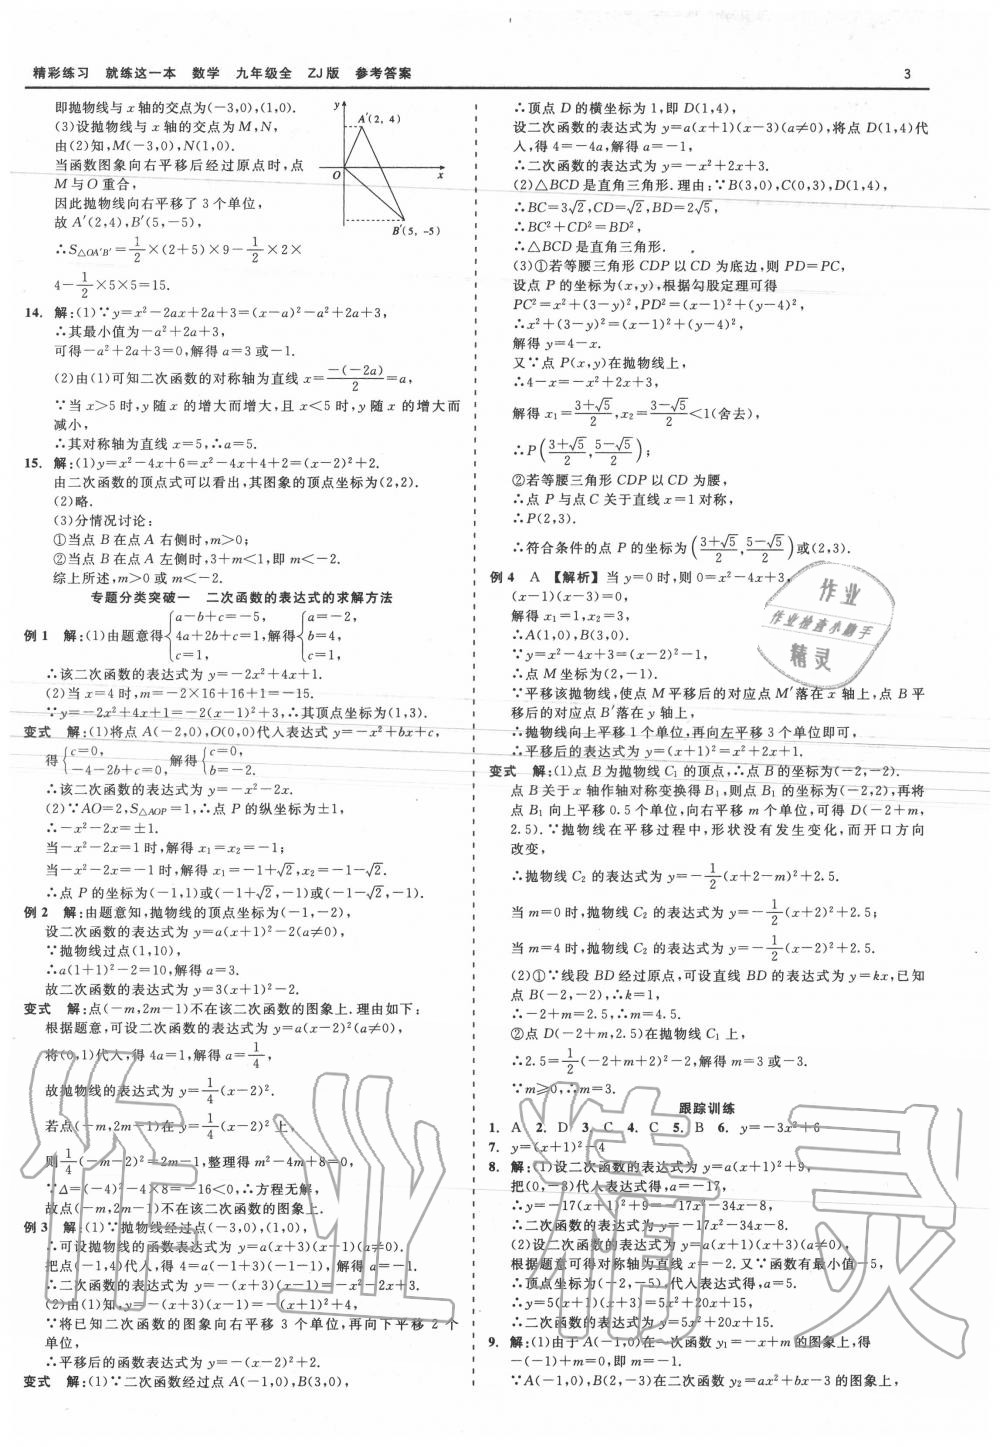 精彩练习 就练这一本 数学 九年级全 ZJ版 参考答案 3
即抛物线与x轴的交点为(-3,0),(1,0).
(3)设抛物线与x轴的交点为M,N,
由(2)知,M(-3,0),N(1,0).
当函数图象向右平移后经过原点时,点
M与O重合,
因此抛物线向右平移了3个单位,
故A′(2,4),B′(5,-5),
∴S△OA′B′=1/2×(2+5)×9-1/2×2×
4-1/2×5×5=15.
y
A′(2, 4)
O
x
B′(5, -5)
14. 解:(1)∵y=x²-2ax+2a+3=(x-a)²-a²+2a+3,
∴其最小值为-a²+2a+3,
可得-a²+2a+3=0,解得a=3或-1.
(2)由(1)可知二次函数的对称轴为直线x=-(-2a)/2=a,
∵当x>5时,y随x的增大而增大,且x<5时,y随x的增大而
减小,
∴其对称轴为直线x=5,∴a=5.
15. 解:(1)y=x²-4x+6=x²-4x+4+2=(x-2)²+2.
由二次函数的顶点式可以看出,其图象的顶点坐标为(2,2).
(2)略.
(3)分情况讨论:
①当点B在点A右侧时,m>0;
②当点B在点A左侧时,3+m<1,即m<-2.
综上所述,m>0或m<-2.
专题分类突破一 二次函数的表达式的求解方法
例1 解:(1)由题意得{a-b+c=-5, 4a+2b+c=1, c=1, 解得{a=-2, b=4, c=1,
∴该二次函数的表达式为y=-2x²+4x+1.
(2)当x=4时,m=-2×16+16+1=-15.
∵y=-2x²+4x+1=-2(x-1)²+3,∴其顶点坐标为(1,3).
变式 解:(1)将点A(-2,0),O(0,0)代入表达式y=-x²+bx+c,
得{c=0, -4-2b+c=0, 解得{c=0, b=-2.
∴该二次函数的表达式为y=-x²-2x.
(2)∵AO=2,S△AOP=1,∴点P的纵坐标为±1,
∴-x²-2x=±1.
当-x²-2x=1时,解得x₁=x₂=-1;
当-x²-2x=-1时,解得x₁=-1+√2,x₂=-1-√2.
∴点P的坐标为(-1,1)或(-1+√2,-1)或(-1-√2,-1).
例2 解:由题意知,抛物线的顶点坐标为(-1,-2),
设二次函数的表达式为y=a(x+1)²-2(a≠0),
∵抛物线过点(1,10),
∴a(1+1)²-2=10,解得a=3.
故二次函数的表达式为y=3(x+1)²-2.
变式 解:点(-m,2m-1)不在该二次函数的图象上.理由如下:
根据题意,可设二次函数的表达式为y=a(x-2)²(a≠0),
将(0,1)代入,得4a=1,解得a=1/4,
故抛物线的表达式为y=1/4(x-2)².
若点(-m,2m-1)在y=1/4(x-2)²上,
则1/4(-m-2)²=2m-1,整理得m²-4m+8=0,
∵Δ=(-4)²-4×8=-16<0,∴方程无解,
故点(-m,2m-1)不在该二次函数的图象上.
例3 解:(1)∵抛物线经过点(-3,0),(1,0),
∴可设抛物线的函数表达式为y=a(x+3)(x-1)(a≠0).
把点(-1,4)代入,得4=a(-1+3)(-1-1),解得a=-1.
∴二次函数的表达式为y=-(x+3)(x-1)=-x²-2x+3.
(2)由(1)知:y=-(x+3)(x-1)=-(x+1)²+4,
∵将已知二次函数的图象向右平移3个单位,再向下平移2个
单位,
∴平移后的函数表达式为y=-(x-2)²+2.
变式 解:(1)∵二次函数经过点A(-1,0),B(3,0),
∴顶点D的横坐标为1,即D(1,4),
设二次函数的表达式为y=a(x+1)(x-3)(a≠0),将点D(1,4)代
入,得4=-4a,解得a=-1,
∴二次函数的表达式为y=-x²+2x+3.
(2)△BCD是直角三角形.理由:∵B(3,0),C(0,3),D(1,4),
∴BC=3√2,CD=√2,BD=2√5,
∴BC²+CD²=BD²,
∴△BCD是直角三角形.
(3)①若等腰三角形CDP以CD为底边,则PD=PC,
设点P的坐标为(x,y),根据勾股定理可得
PC²=x²+(3-y)²,PD²=(x-1)²+(y-4)²,
∴x²+(3-y)²=(x-1)²+(y-4)²,
解得y=4-x.
又∵点P(x,y)在抛物线上,
∴4-x=-x²+2x+3,
解得x₁=(3+√5)/2,x₂=(3-√5)/2<1(舍去),
∴P((3+√5)/2,(5-√5)/2);
②若等腰三角形CDP以CD为腰,
∴点P与点C关于直线x=1对称,
∴P(2,3).
∴符合条件的点P的坐标为((3+√5)/2,(5-√5)/2)或(2,3).
例4 A 【解析】当y=0时,则0=x²-4x+3,
(x-1)(x-3)=0,
解得x₁=1,x₂=3,
∴A(1,0),B(3,0).
∵y=x²-4x+3=(x-2)²-1,
∴点M坐标为(2,-1).
∵平移该抛物线,使点M平移后的对应点M′落在x轴上,点B平
移后的对应点B′落在y轴上,
∴抛物线向上平移1个单位,再向左平移3个单位即可,
∴平移后的表达式为y=(x+1)²=x²+2x+1.
变式 解:(1)点B为抛物线C₁的顶点,∴点B的坐标为(-2,-2).
点B关于x轴作轴对称变换得B₁,则点B₁的坐标为(-2,2),再将
点B₁向上平移0.5个单位,向右平移m个单位,可得D(-2+m,
2.5).∵抛物线在平移过程中,形状没有发生变化,而开口方向
改变,
∴抛物线C₂的表达式为y=-1/2(x+2-m)²+2.5.
当m=0时,抛物线C₂的表达式为y=-1/2(x+2)²+2.5;
当m=4时,抛物线C₂的表达式为y=-1/2(x-2)²+2.5.
(2)①∵线段BD经过原点,可设直线BD的表达式为y=kx,已知
点B(-2,-2),∴k=1,
∴-2+m=2.5,∴m=4.5.
②点D(-2+m,2.5)在抛物线C₁上,
∴2.5=1/2(-2+m+2)²-2,解得m=3或-3.
∵m≥0,∴m=3.
跟踪训练
1. A 2. D 3. C 4. C 5. B 6. y=-3x²+6
7. y=(x+1)²-4
8. 解:(1)设二次函数的表达式为y=a(x+1)²+9,
把(0,-8)代入表达式得,a=-17,
∴y=-17(x+1)²+9=-17x²-34x-8,
∴二次函数的表达式为y=-17x²-34x-8.
(2)设二次函数的表达式为y=a(x+1)(x+3)(a≠0),
根据题意可得对称轴为直线x=-2.又∵函数有最小值-5,
∴顶点坐标为(-2,-5),代入表达式得,a=5.
∴y=5(x+1)(x+3)=5x²+20x+15,
∴二次函数的表达式为y=5x²+20x+15.
9. 解:(1)由于A(-1,0)在一次函数y₁=-x+m的图象上,得
-(-1)+m=0,即m=-1.
∵A(-1,0),B(2,-3)在二次函数y₂=ax²+bx-3的图象上,
作业
作业检查小助手
精灵
作业精灵